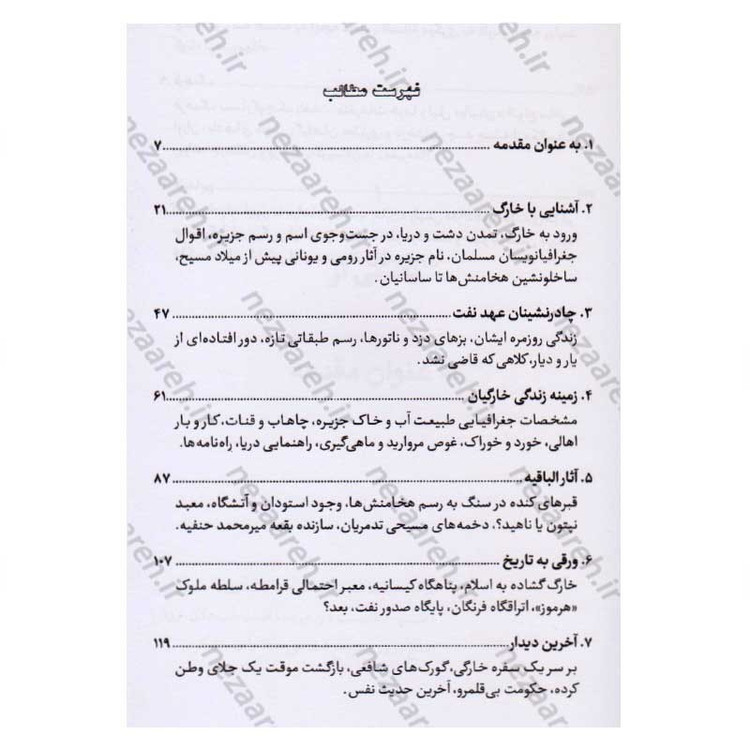 فهرست مطالب
۱. به عنوان مقدمه ........ ۷
۲. آشنایی با خارگ ........ ۲۱
ورود به خارگ، تمدن دشت و دریا، در جست‌وجوی اسم و رسم جزیره، اقوال
جغرافیانویسان مسلمان، نام جزیره در آثار رومی و یونانی پیش از میلاد مسیح،
ساخلونشین هخامنش‌ها تا ساسانیان.
۳. چادرنشینان عهد نفت ........ ۴۷
زندگی روزمره ایشان، بزهای دزد و ناتورها، رسم طبقاتی تازه، دور افتاده‌ای از
یار و دیار، کلاهی که قاضی نشد.
۴. زمینه زندگی خارگیان ........ ۶۱
مشخصات جغرافیایی طبیعت آب و خاک جزیره، چاهاب و قنات، کار و بار
اهالی، خورد و خوراک، غوص مروارید و ماهی‌گیری، راهنمایی دریا، راه‌نامه‌ها.
۵. آثار الباقیه ........ ۸۷
قبرهای کنده در سنگ به رسم هخامنش‌ها، وجود استودان و آتشگاه، معبد
نپتون یا ناهید؟، دخمه‌های مسیحی تدمریان، سازنده بقعه میرمحمد حنفیه.
۶. ورقی به تاریخ ........ ۱۰۷
خارگ گشاده به اسلام، پناهگاه کیسانیه، معبر احتمالی قرامطه، سلطه ملوک
«هرموز»، اتراقگاه فرنگان، پایگاه صدور نفت، بعد؟
۷. آخرین دیدار ........ ۱۱۹
بر سر یک سفره خارگی، گورک‌های شافعی، بازگشت موقت یک جلای وطن
کرده، حکومت بی‌قلمرو، آخرین حدیث نفس.
nezaareh.ir